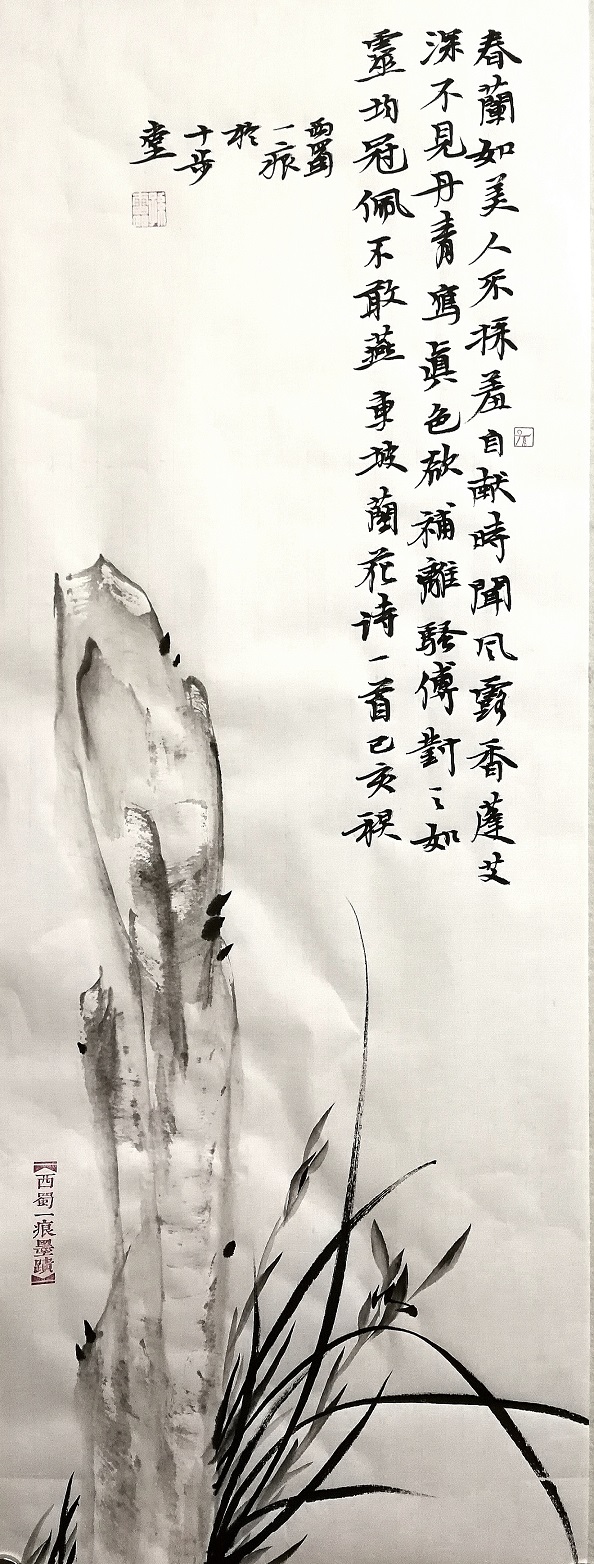 春蘭如美人不採羞自献時聞风露香蓬艾
深不見丹青寫眞色欲補離騷傅對之如
靈均冠佩不敢燕東坡蘭花诗一首己亥禩
西蜀
一痕
於
十步
堂
【西蜀一痕墨蹟】